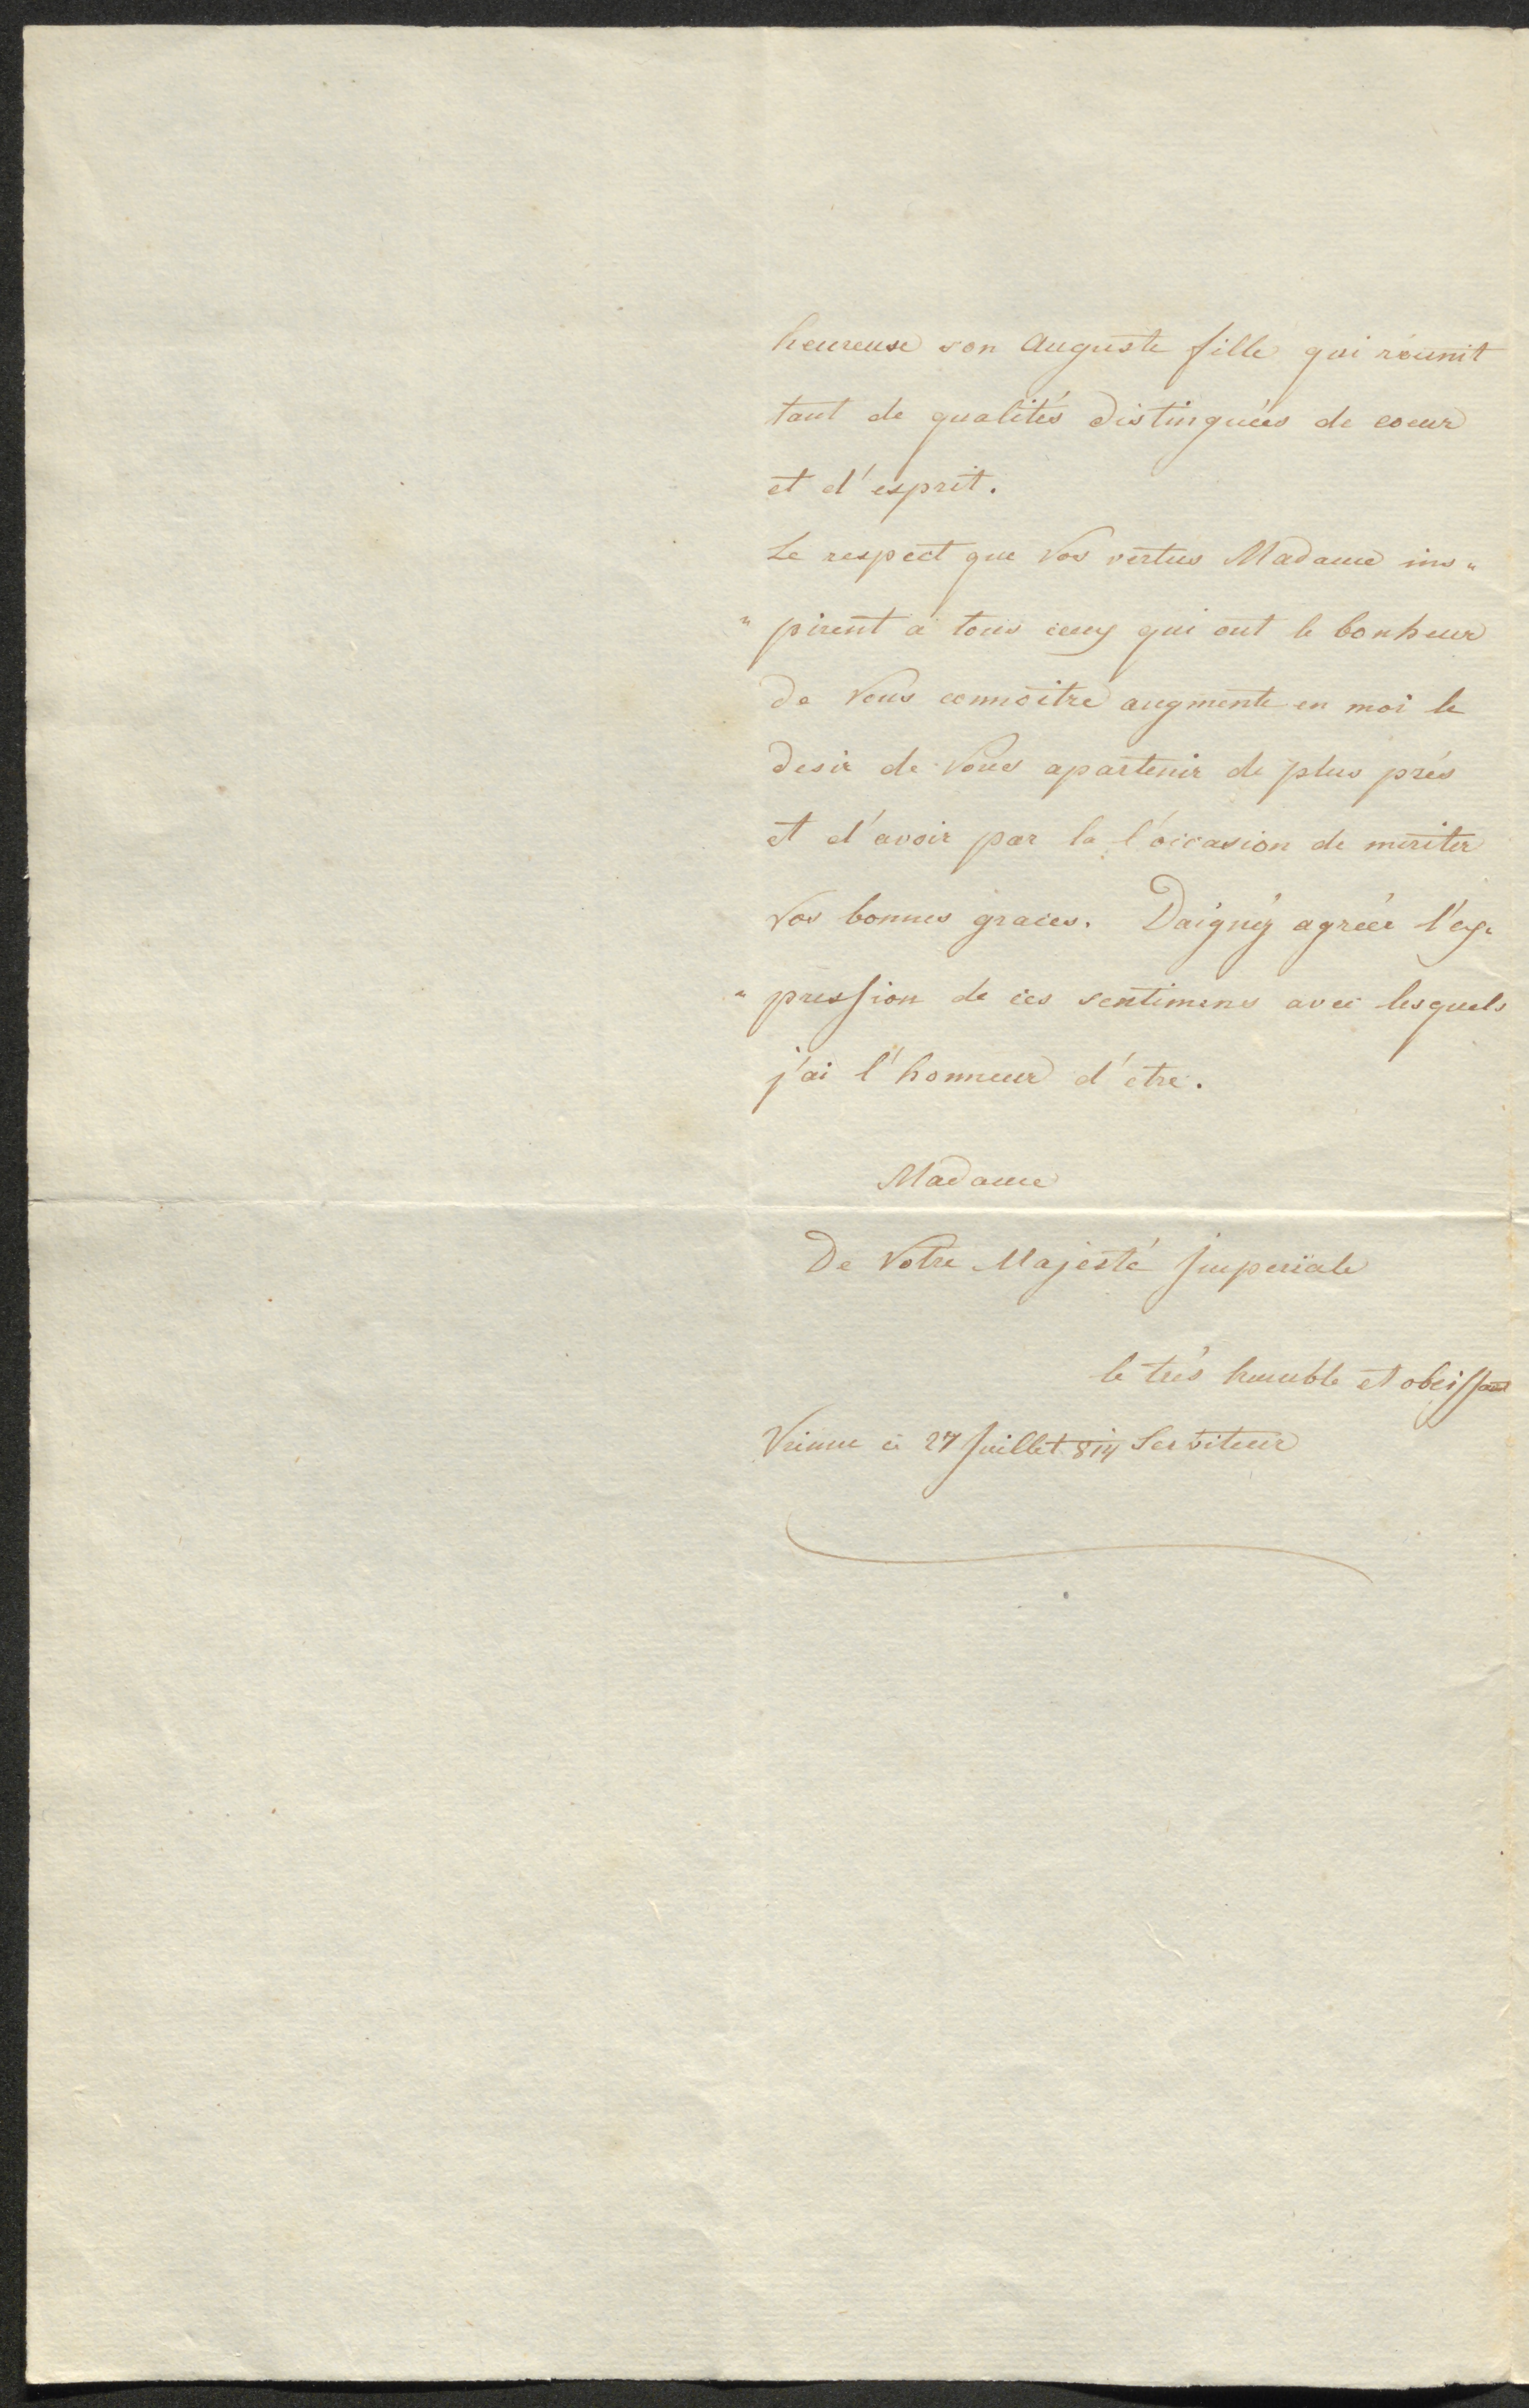 heureuse son Auguste fille qui réunit
tant de qualités distinguées de coeur
et d'esprit.
Le respect que Vos vertus Madame ins„
„pirent à tous ceux qui ont le bonheur
de Vous connoitre augmente en moi le
desir de Vous apartenir de plus prés
et d'avoir par la l'occasion de meriter
Vos bonnes graces. Daignéz agréér l'ex„
„pression de ces sentimens avec lesquels
j'ai l'honneur d'etre.
Madame
De Votre Majesté Imperiale
le trés humble et obeissant
Vienne ce 27 Juillet 814 Serviteur